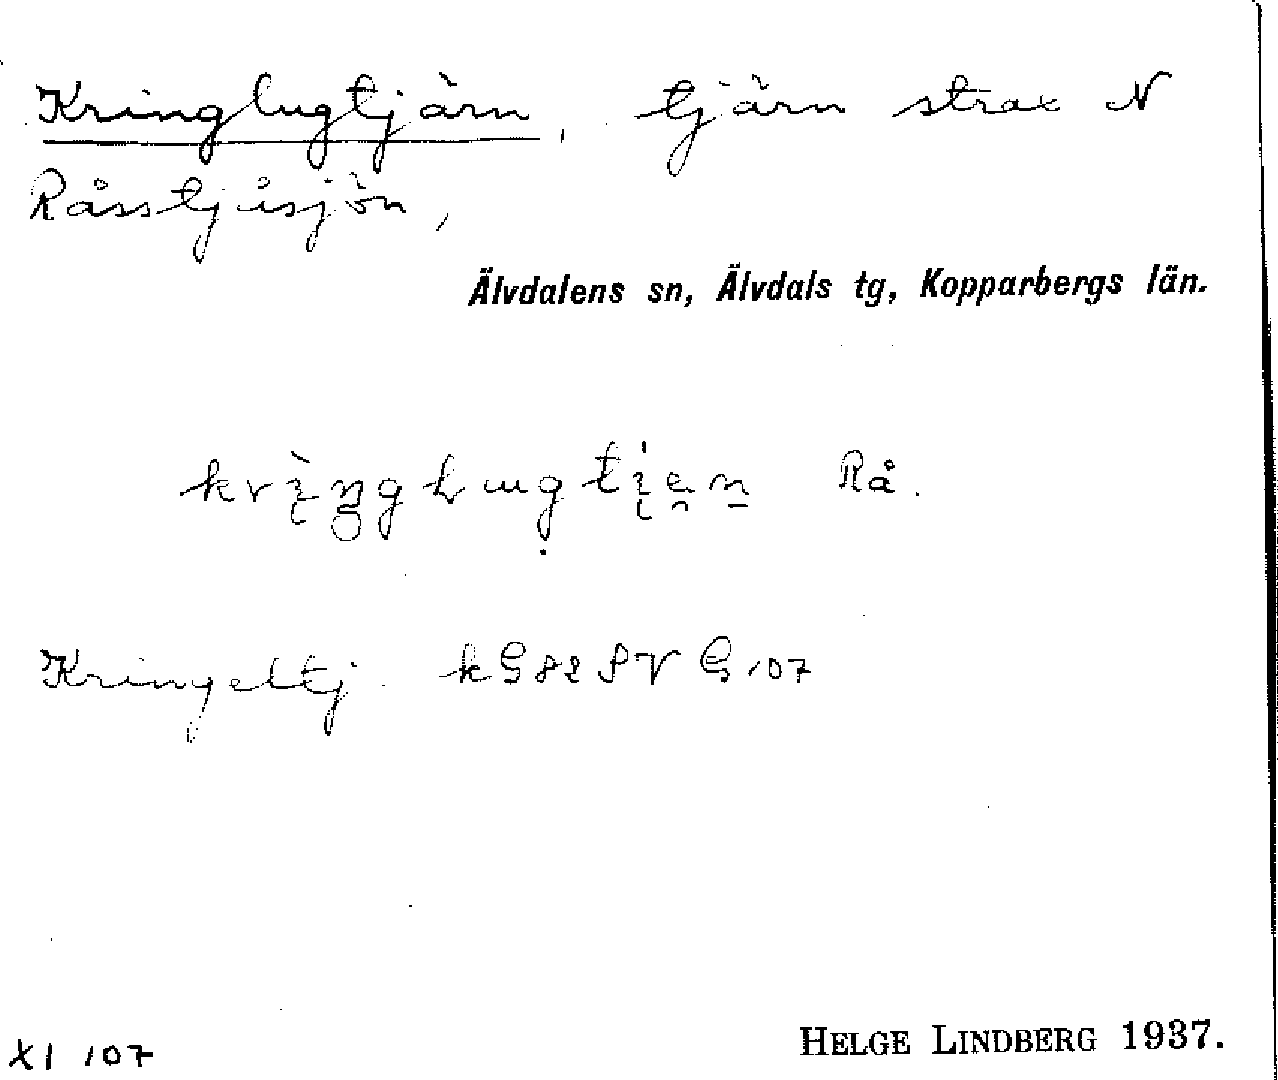 Kringlugtjärn, tjärn strax N
Råsstjåsjön,
Älvdalens sn, Älvdals tg, Kopparbergs län.
Rå.
Kringeltj. kG 82 SV G 107
XI 107
HELGE LINDBERG 1937.